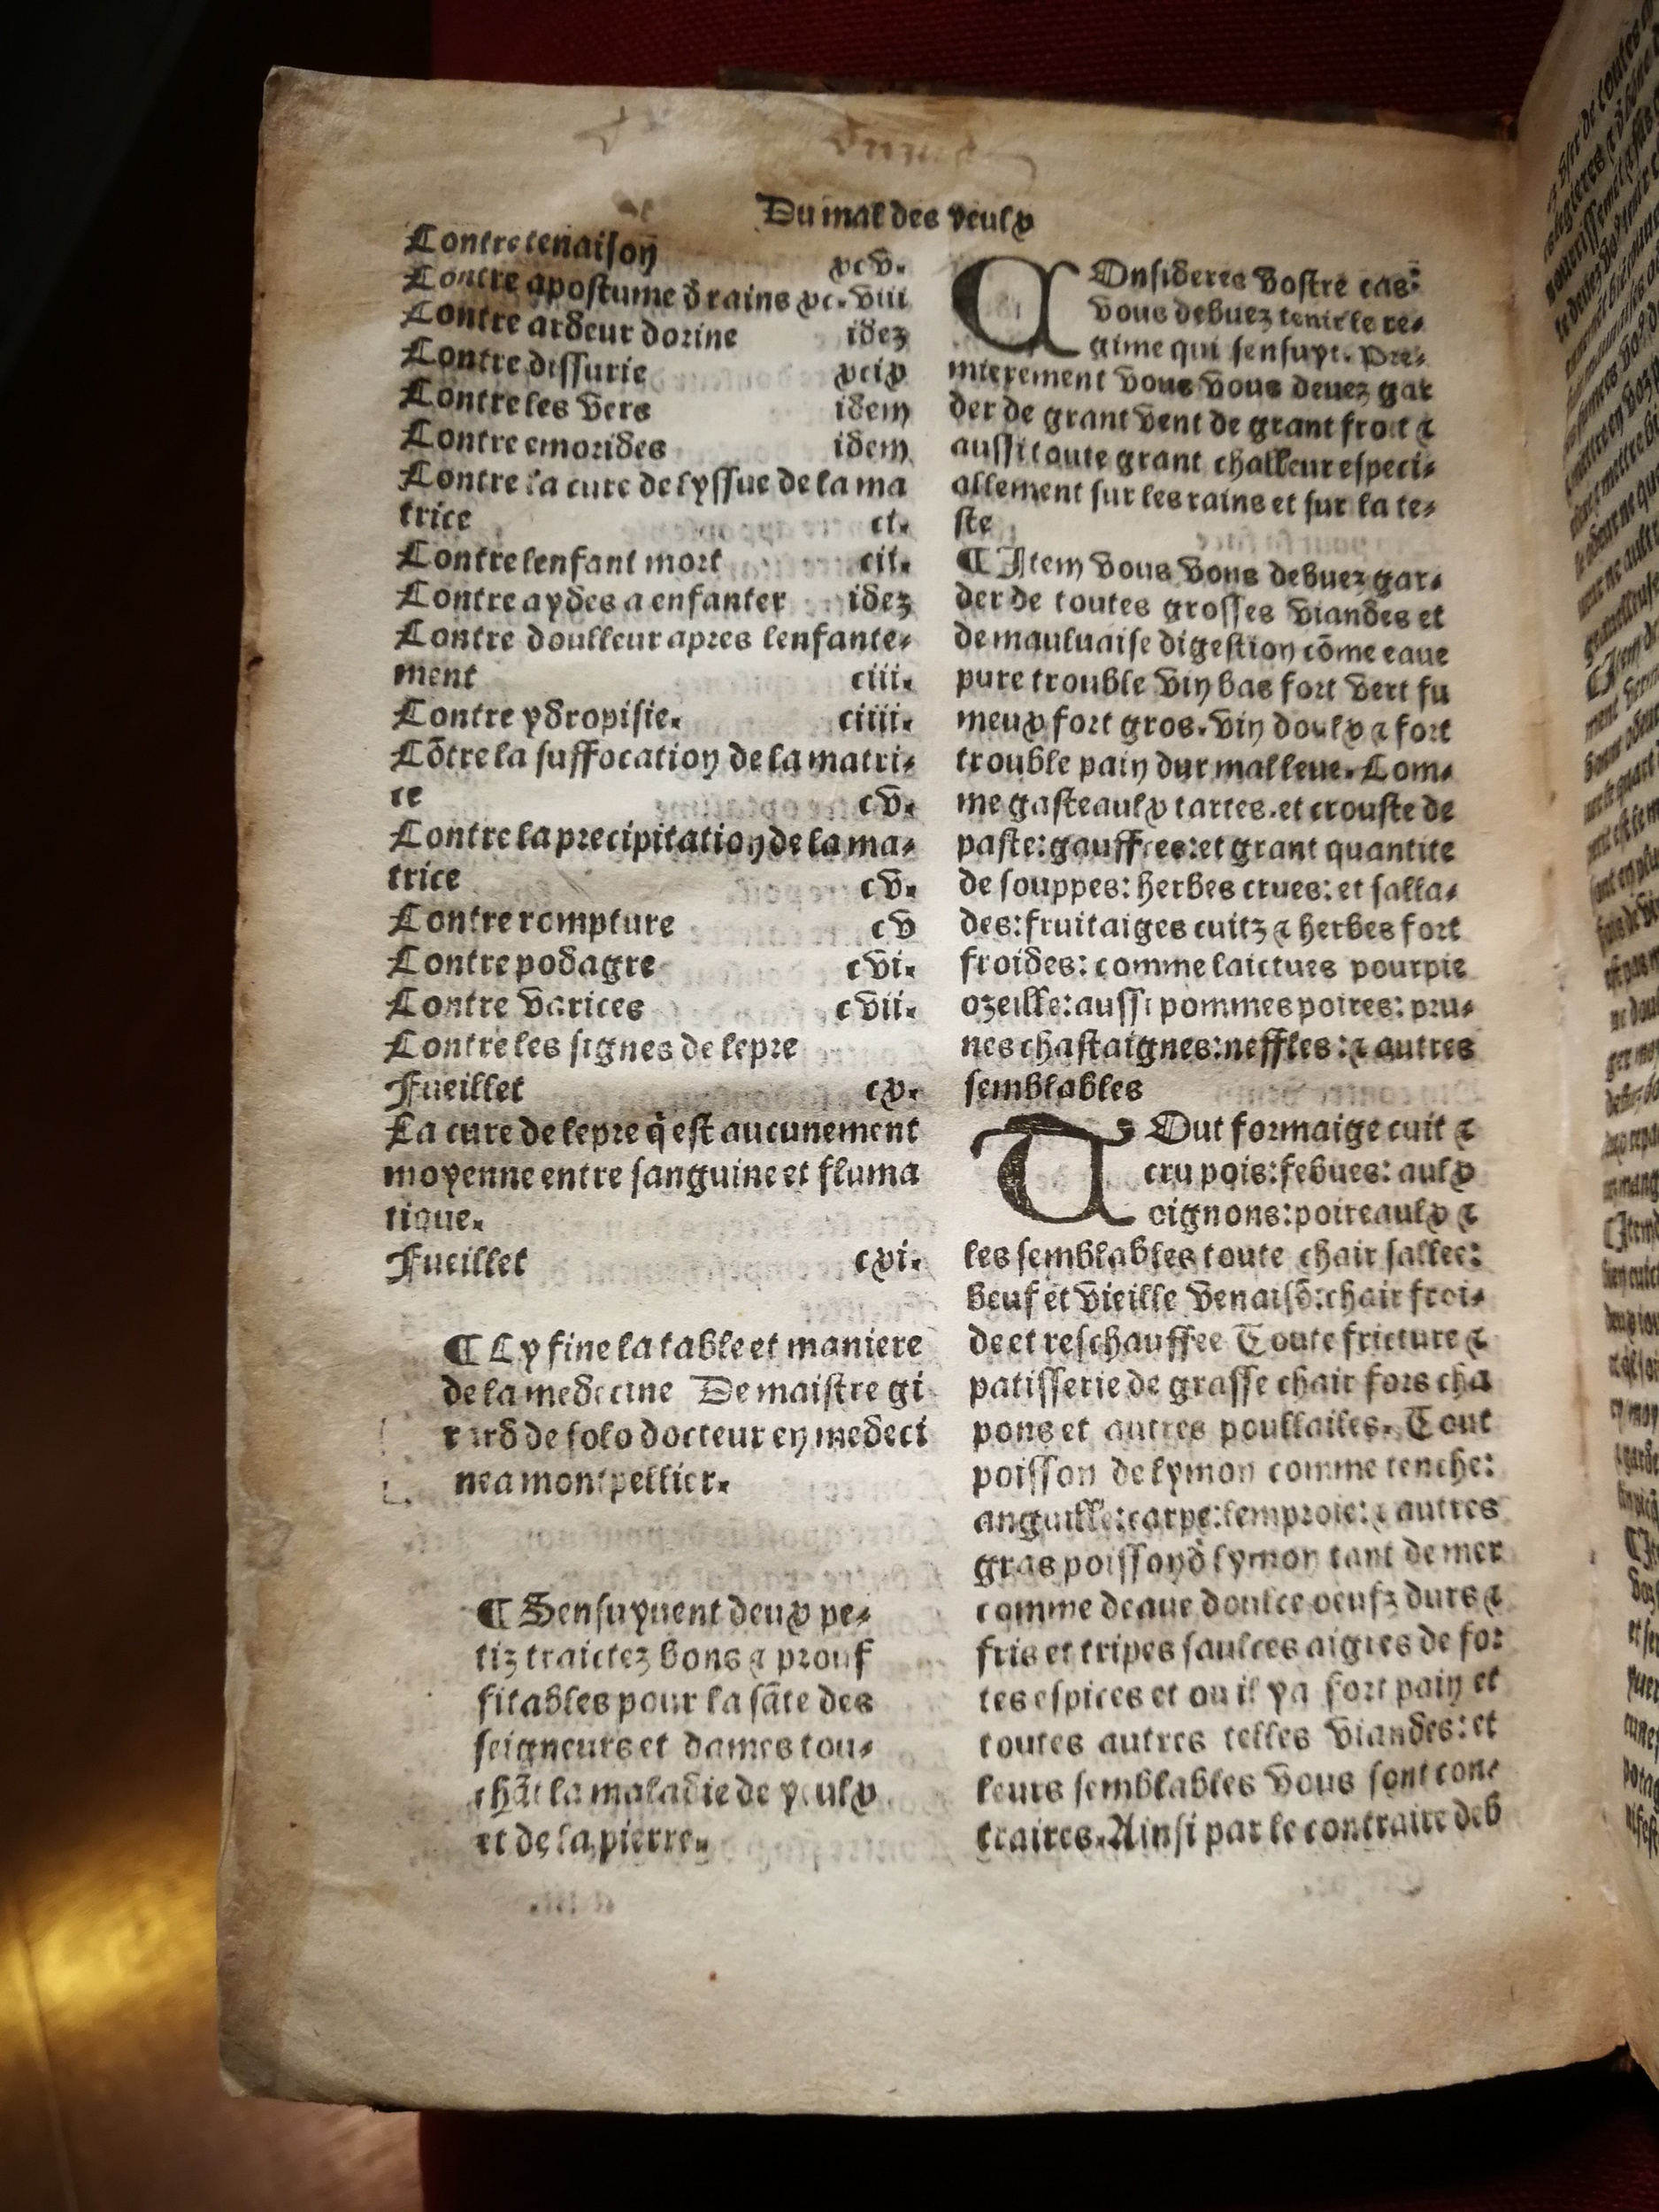 Du mal des yeulx
Contre tenaison
xcv.
Contre apostume d̄ rains xc.viii
Contre ardeur dorine idez
Contre dissurie xcix
Contre les vers idem
Contre emorides idem
Contre la cure de lyssue de la ma
trice ci.
Contre lenfant mort cii.
Contre aydes a enfanter idez
Contre doulleur apres lenfante⸗
ment ciii.
Contre ydropisie. ciiii.
Cōtre la suffocation de la matri⸗
ce cv.
Contre la precipitation de la ma⸗
trice cv.
Contre rompture cv
Contre podagre cvi.
Contre varices cvii.
Contre les signes de lepre
Fueillet cx.
La cure de lepre q̇ est aucunement
moyenne entre sanguine et fluma
tique.
Fueillet cxi.
¶ Cy fine la table et maniere
de la medecine De maistre gi
rard de solo docteur en medeci
ne a montpellier.
¶ Sensuyuent deux pe⸗
tiz traictez bons ⁊ prouf
fitables pour la sāte des
seigneurs et dames tou⸗
chāt la maladie de yeulx
et de la pierre.
COnsideres vostre cas:
vous debuez tenir le re⸗
gime qui sensuyt. Pre⸗
mierement vous vous deuez gar
der de grant vent de grant froit ⁊
aussi toute grant challeur especi⸗
allement sur les rains et sur la te⸗
ste
¶ Item vous vous debuez gar⸗
der de toutes grosses viandes et
de mauluaise digestion cōme eaue
pure trouble vin bas fort vert fu
meux fort gros. vin doulx ⁊ fort
trouble pain dur mal leue. Com⸗
me gasteaulx tartes. et crouste de
paste: gauffres: et grant quantite
de souppes: herbes crues: et salla⸗
des: fruitaiges cuitz ⁊ herbes fort
froides: comme laictues pourpie
ozeille: aussi pommes poires: pru⸗
nes chastaignes: neffles: ⁊ autres
semblables
TOut formaige cuit ⁊
cru pois: febues: aulx
oignons: poireaulx ⁊
les semblables toute chair sallee:
beuf et vieille venaisō: chair froi⸗
de et reschauffee Toute fricture ⁊
patisserie de grasse chair fors cha
pons et autres poullailes. Tout
poisson de lymon comme tenche:
anguille: carpe: lemproie: ⁊ autres
gras poisson d̄ lymon tant de mer
comme deaue doulce oeufz durs ⁊
fris et tripes saulces aigres de for
tes espices et ou il ya fort pain et
toutes autres telles viandes: et
leurs semblables vous sont con⸗
traires. Ainsi par le contraire deb